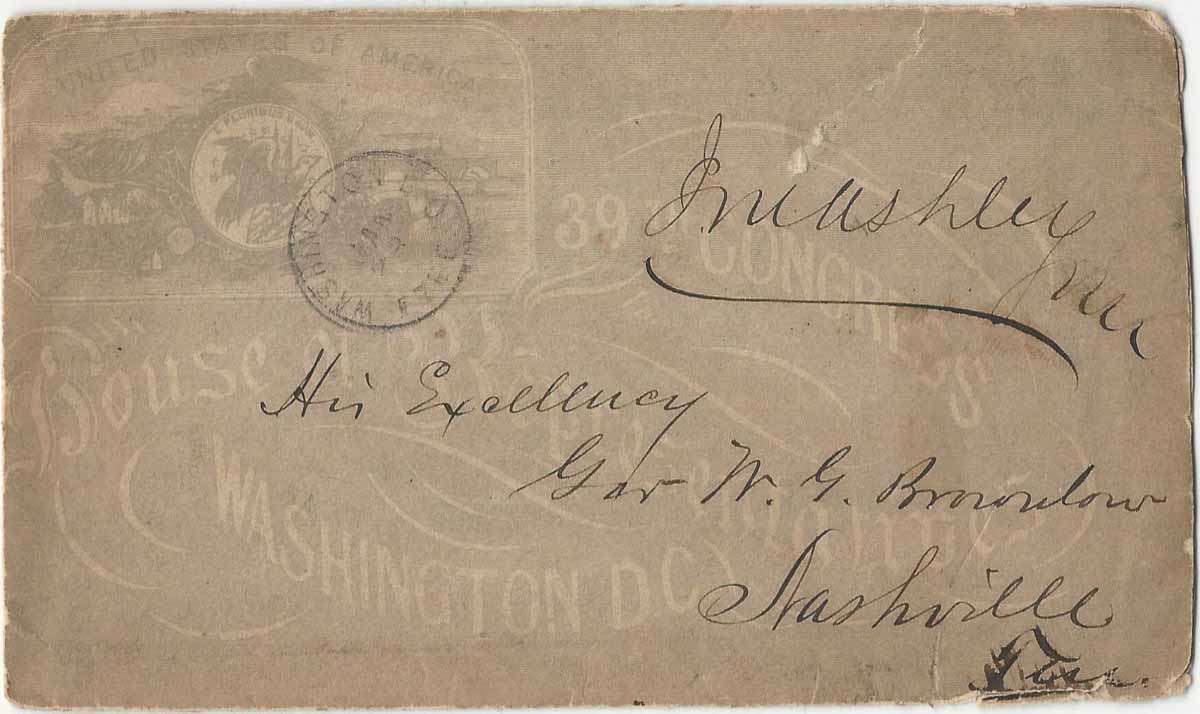 UNITED STATES OF AMERICA
E PLURIBUS UNUM
WASHINGTON D.C.
JAN
FREE
39TH CONGRESS
House of Representatives
WASHINGTON D.C.
J. M. Ashley
M.C.
His Excellency
Gov W. G. Brownlow
Nashville
Ten.